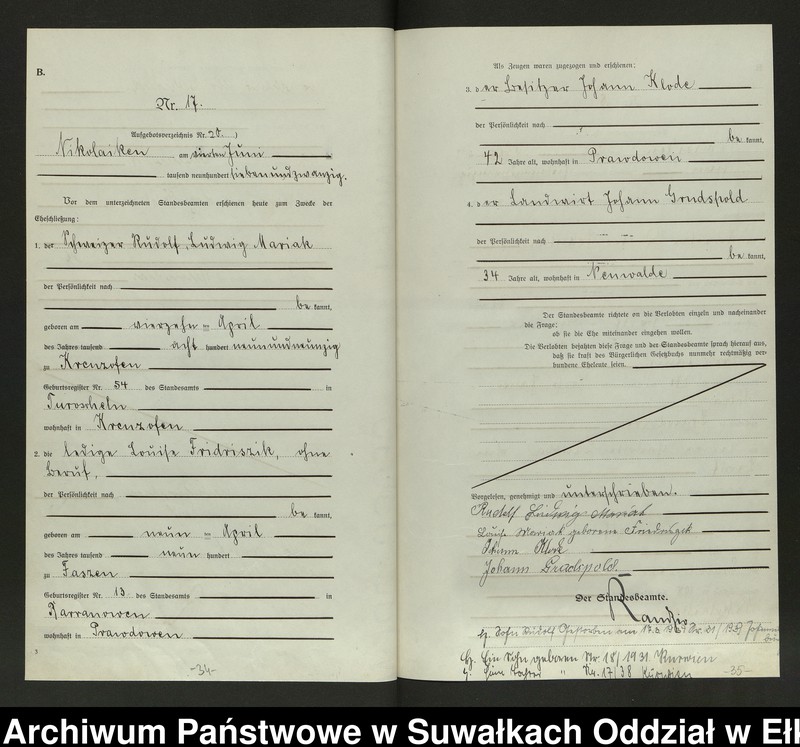 B.
Nr. 17.
Aufgebotsverzeichnis Nr. 20.)
Nikolaiken am vierten Juni
tausend neunhundert siebenundzwanzig.
Vor dem unterzeichneten Standesbeamten erschienen heute zum Zwecke der
Eheschließung:
1. der Schweizer Rudolf Ludwig Mariak
der Persönlichkeit nach
be kannt,
geboren am vierzehn ten April
des Jahres tausend acht hundert neunundneunzig
zu Kreuzofen
Geburtsregister Nr. 54 des Standesamts in
Turoscheln
wohnhaft in Kreuzofen
2. die ledige Louise Fridriszik, ohne
Beruf,
der Persönlichkeit nach
be kannt,
geboren am neun ten April
des Jahres tausend neun hundert
zu Faszen
Geburtsregister Nr. 13 des Standesamts in
Karranowen
wohnhaft in Prawdowen
3
-34-
Als Zeugen waren zugezogen und erschienen:
3. der Besitzer Johann Klode
der Persönlichkeit nach
be kannt,
42 Jahre alt, wohnhaft in Prawdowen
4. der Landwirt Johann
der Persönlichkeit nach
be kannt,
34 Jahre alt, wohnhaft in Neuwalde
Der Standesbeamte richtete an die Verlobten einzeln und nacheinander
die Frage:
ob sie die Ehe miteinander eingehen wollen.
Die Verlobten bejahten diese Frage und der Standesbeamte sprach hierauf aus,
daß sie kraft des Bürgerlichen Gesetzbuchs nunmehr rechtmäßig ver-
bundene Eheleute seien.
Vorgelesen, genehmigt und unterschrieben.
Rudolf Ludwig Mariak
Louise Mariak geborene
Johann Klode
Johann
Der Standesbeamte.
Sohn Rudolf am
Ein Sohn geboren Nr. 18/1931 Kurwien
Nr. 17/38 Kurwien
-35-
Archiwum Państwowe w Suwałkach Oddział w Ełk